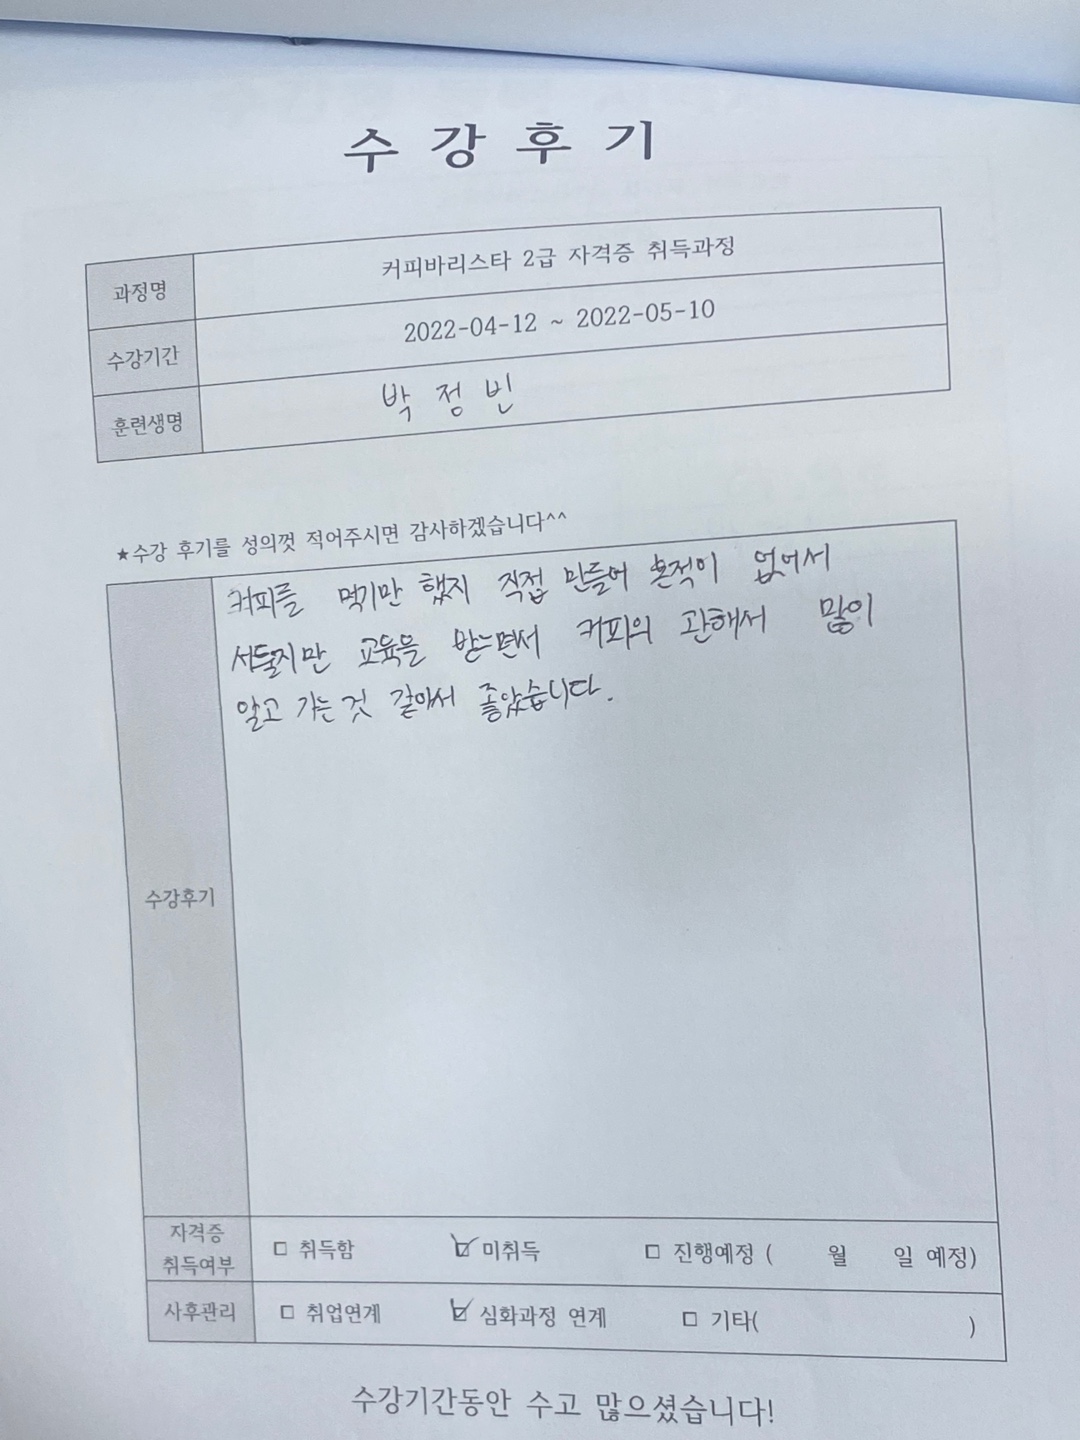 수 강 후 기
과정명 커피바리스타 2급 자격증 취득과정
수강기간 2022-04-12 ~ 2022-05-10
훈련생명 박 정 빈
★수강 후기를 성의껏 적어주시면 감사하겠습니다^^
커피를 먹기만 했지 직접 만들어 흔적이 없어서
서둘지만 교육을 받느면서 커피의 관해서 많이
알고 가는 것 같아서 좋았습니다.
수강후기
자격증 취득여부 □ 취득함 ☑ 미취득 □ 진행예정 ( 월 일 예정)
사후관리 □ 취업연계 ☑ 심화과정 연계 □ 기타( )
수강기간동안 수고 많으셨습니다!